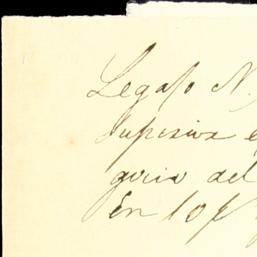 Legajo N.
Superior e
guia del
En 10 f